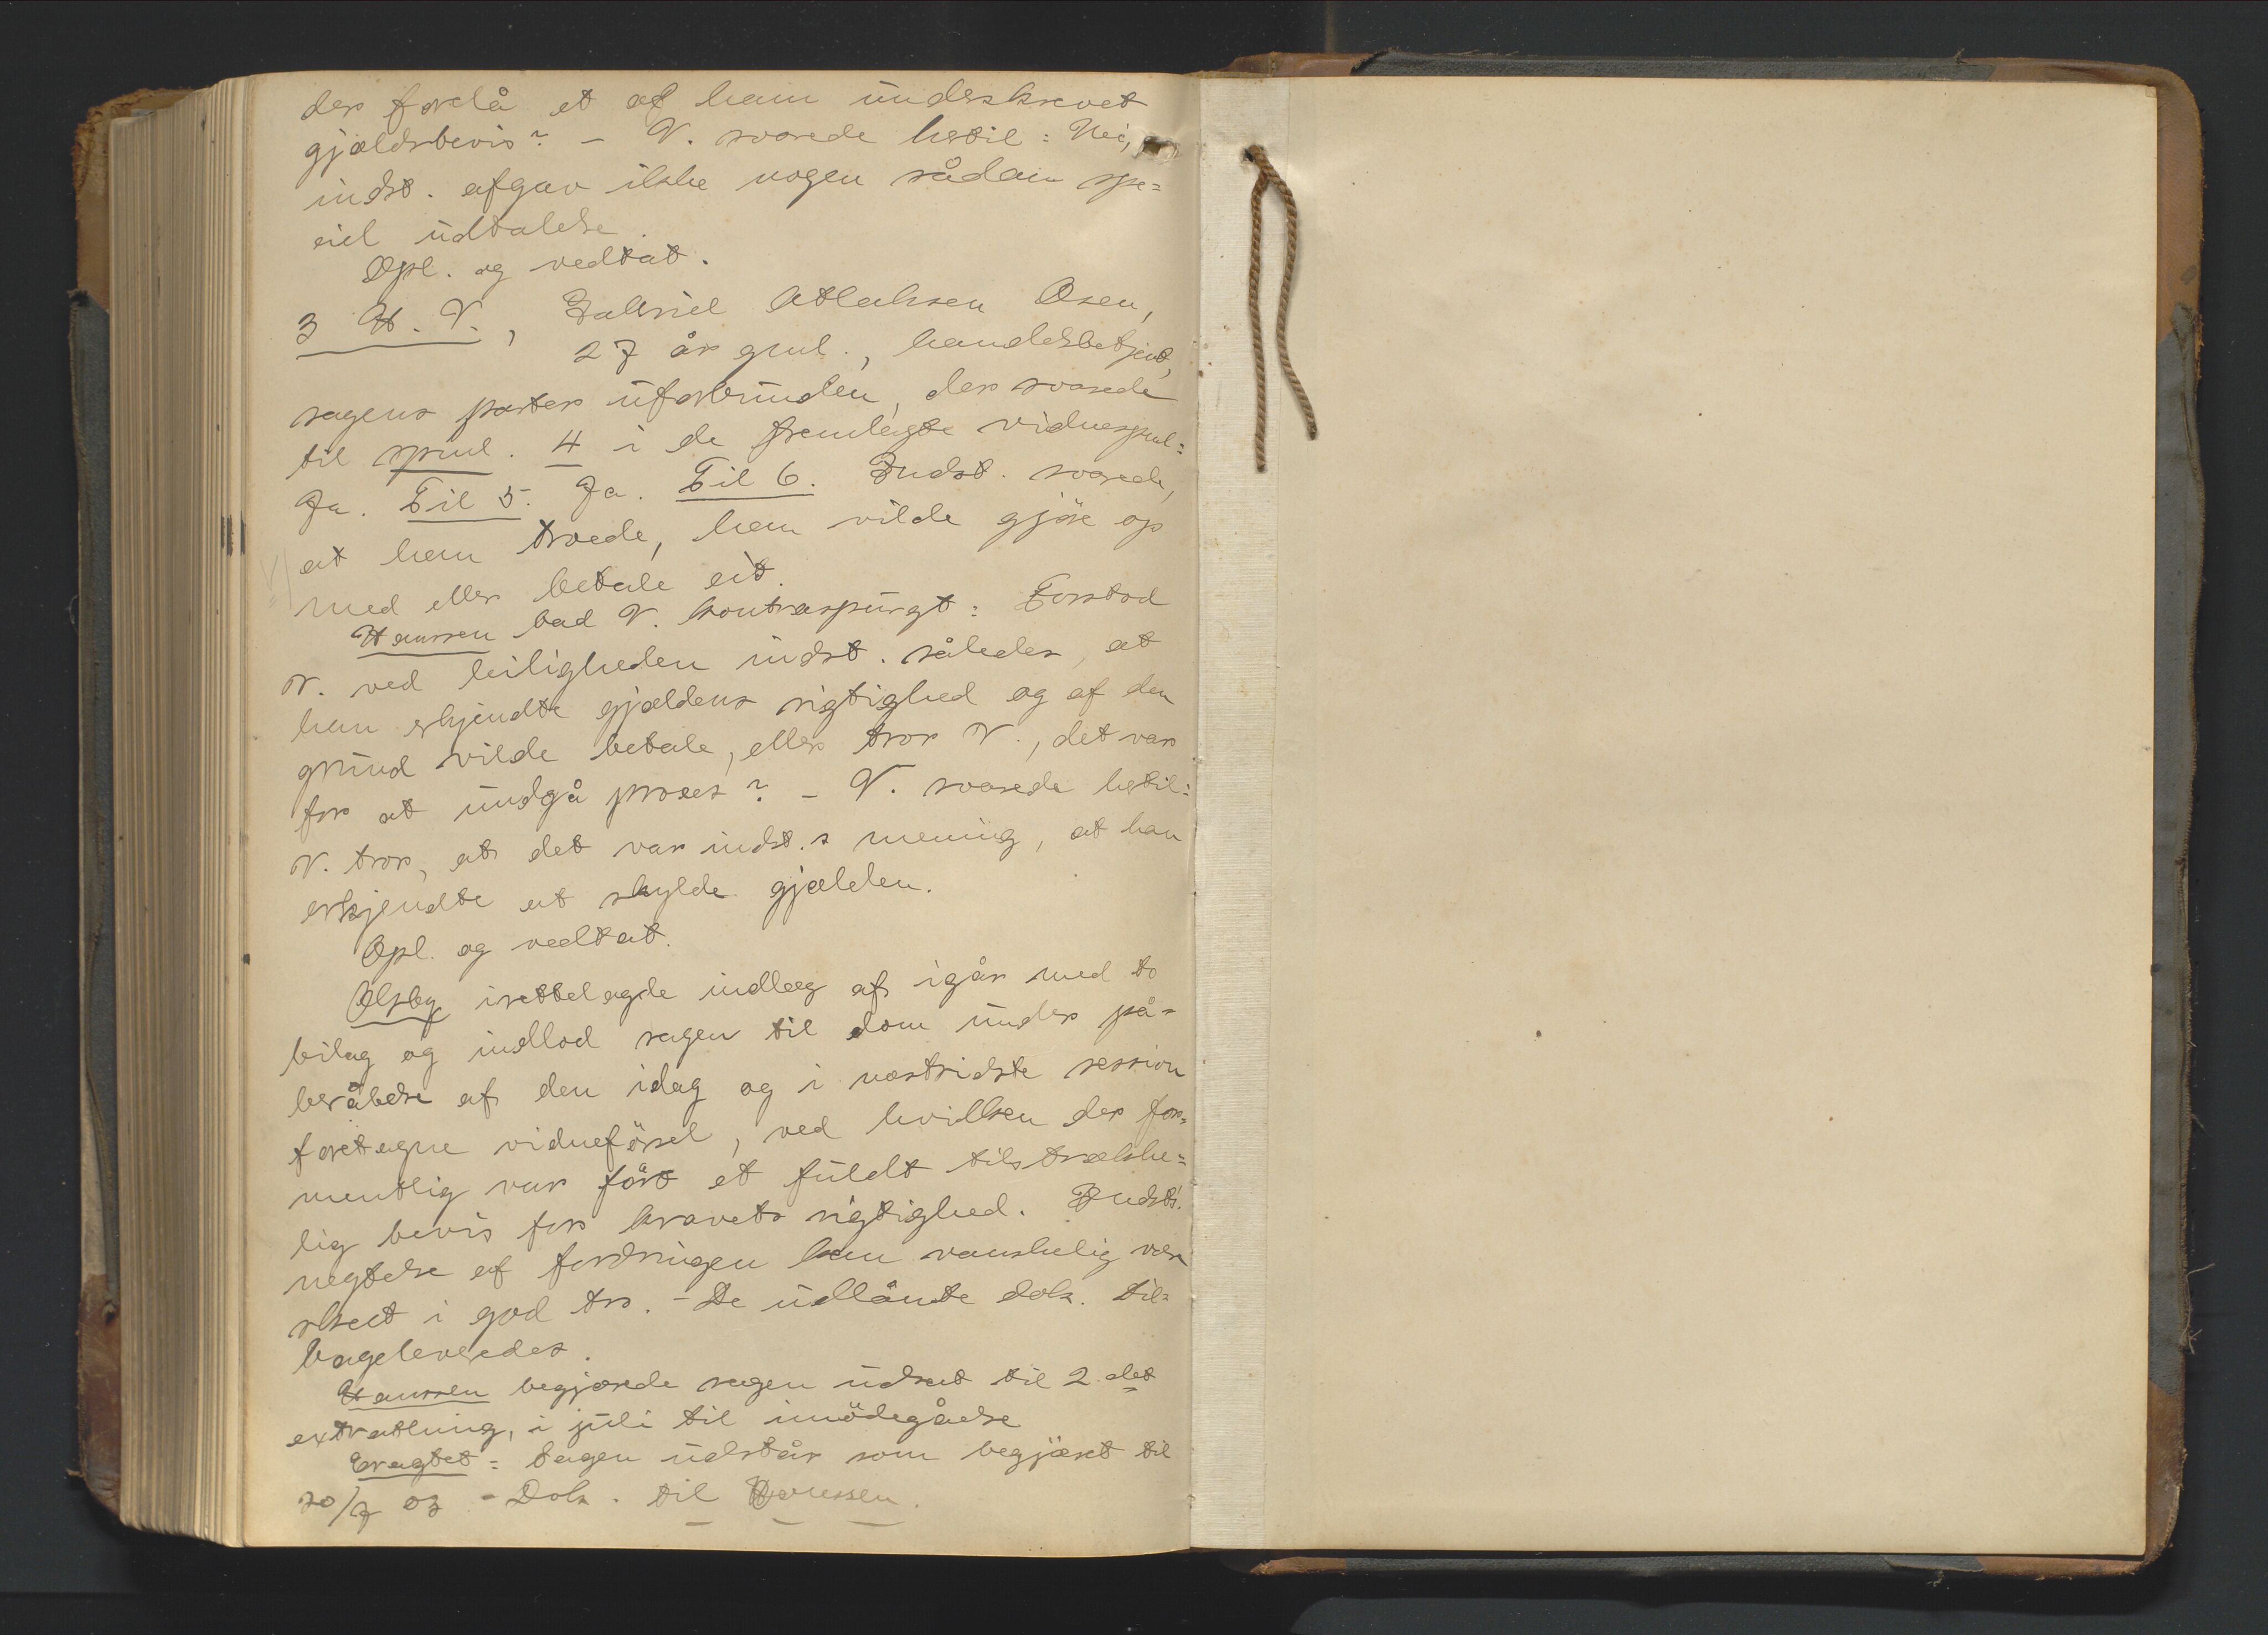 der forelå et af ham underskrevet
gjældsbevis? – V. svarede hertil: Nei,
indst. afgav ikke nogen sådan spe=
ciel udtalelse.
Opl. og vedtat.
3 H. V., Gabriel Atlaksen Osen,
27 år gml., handelsbetjent,
sagens parter uforbunden, der svarede
til spml. 4 i de fremlagte vidnespml:
Ja. Til 5. Ja. Til 6. Indst. svarede,
at han troede, han vilde gjøre op
med eller betale eit.
Hanssen bad V. kontraspurgt: Forstod
V. ved leiligheden indst. således, at
han erkjendte gjældens rigtighed og af den
grund vilde betale, eller tror V., det var
for at undgå proces? – V. svarede hertil:
V. tror, at det var indst.s mening, at han
erkjendte at skylde gjælden.
Opl. og vedtat.
Olsby irettelagde indlæg af igår med to
bilag og indlod sagen til dom under på=
beråbelse af den idag og i næstsidste session
foretagne vidneførsel, ved hvilken der for=
mentlig var ført et fuldt tilstrække=
lig bevis for kravets rigtighed. Indsts.
negtelse af fordringen kan vanskelig være
skeet i god tro. – De udlånte dok. til=
bageleveredes.
Hanssen begjærede sagen udsat til 2.det
extratthing, i juli til imødegåelse
Eragtet: Sagen udstår som begjæret til
20/7 03 – Dok. til Hanssen.